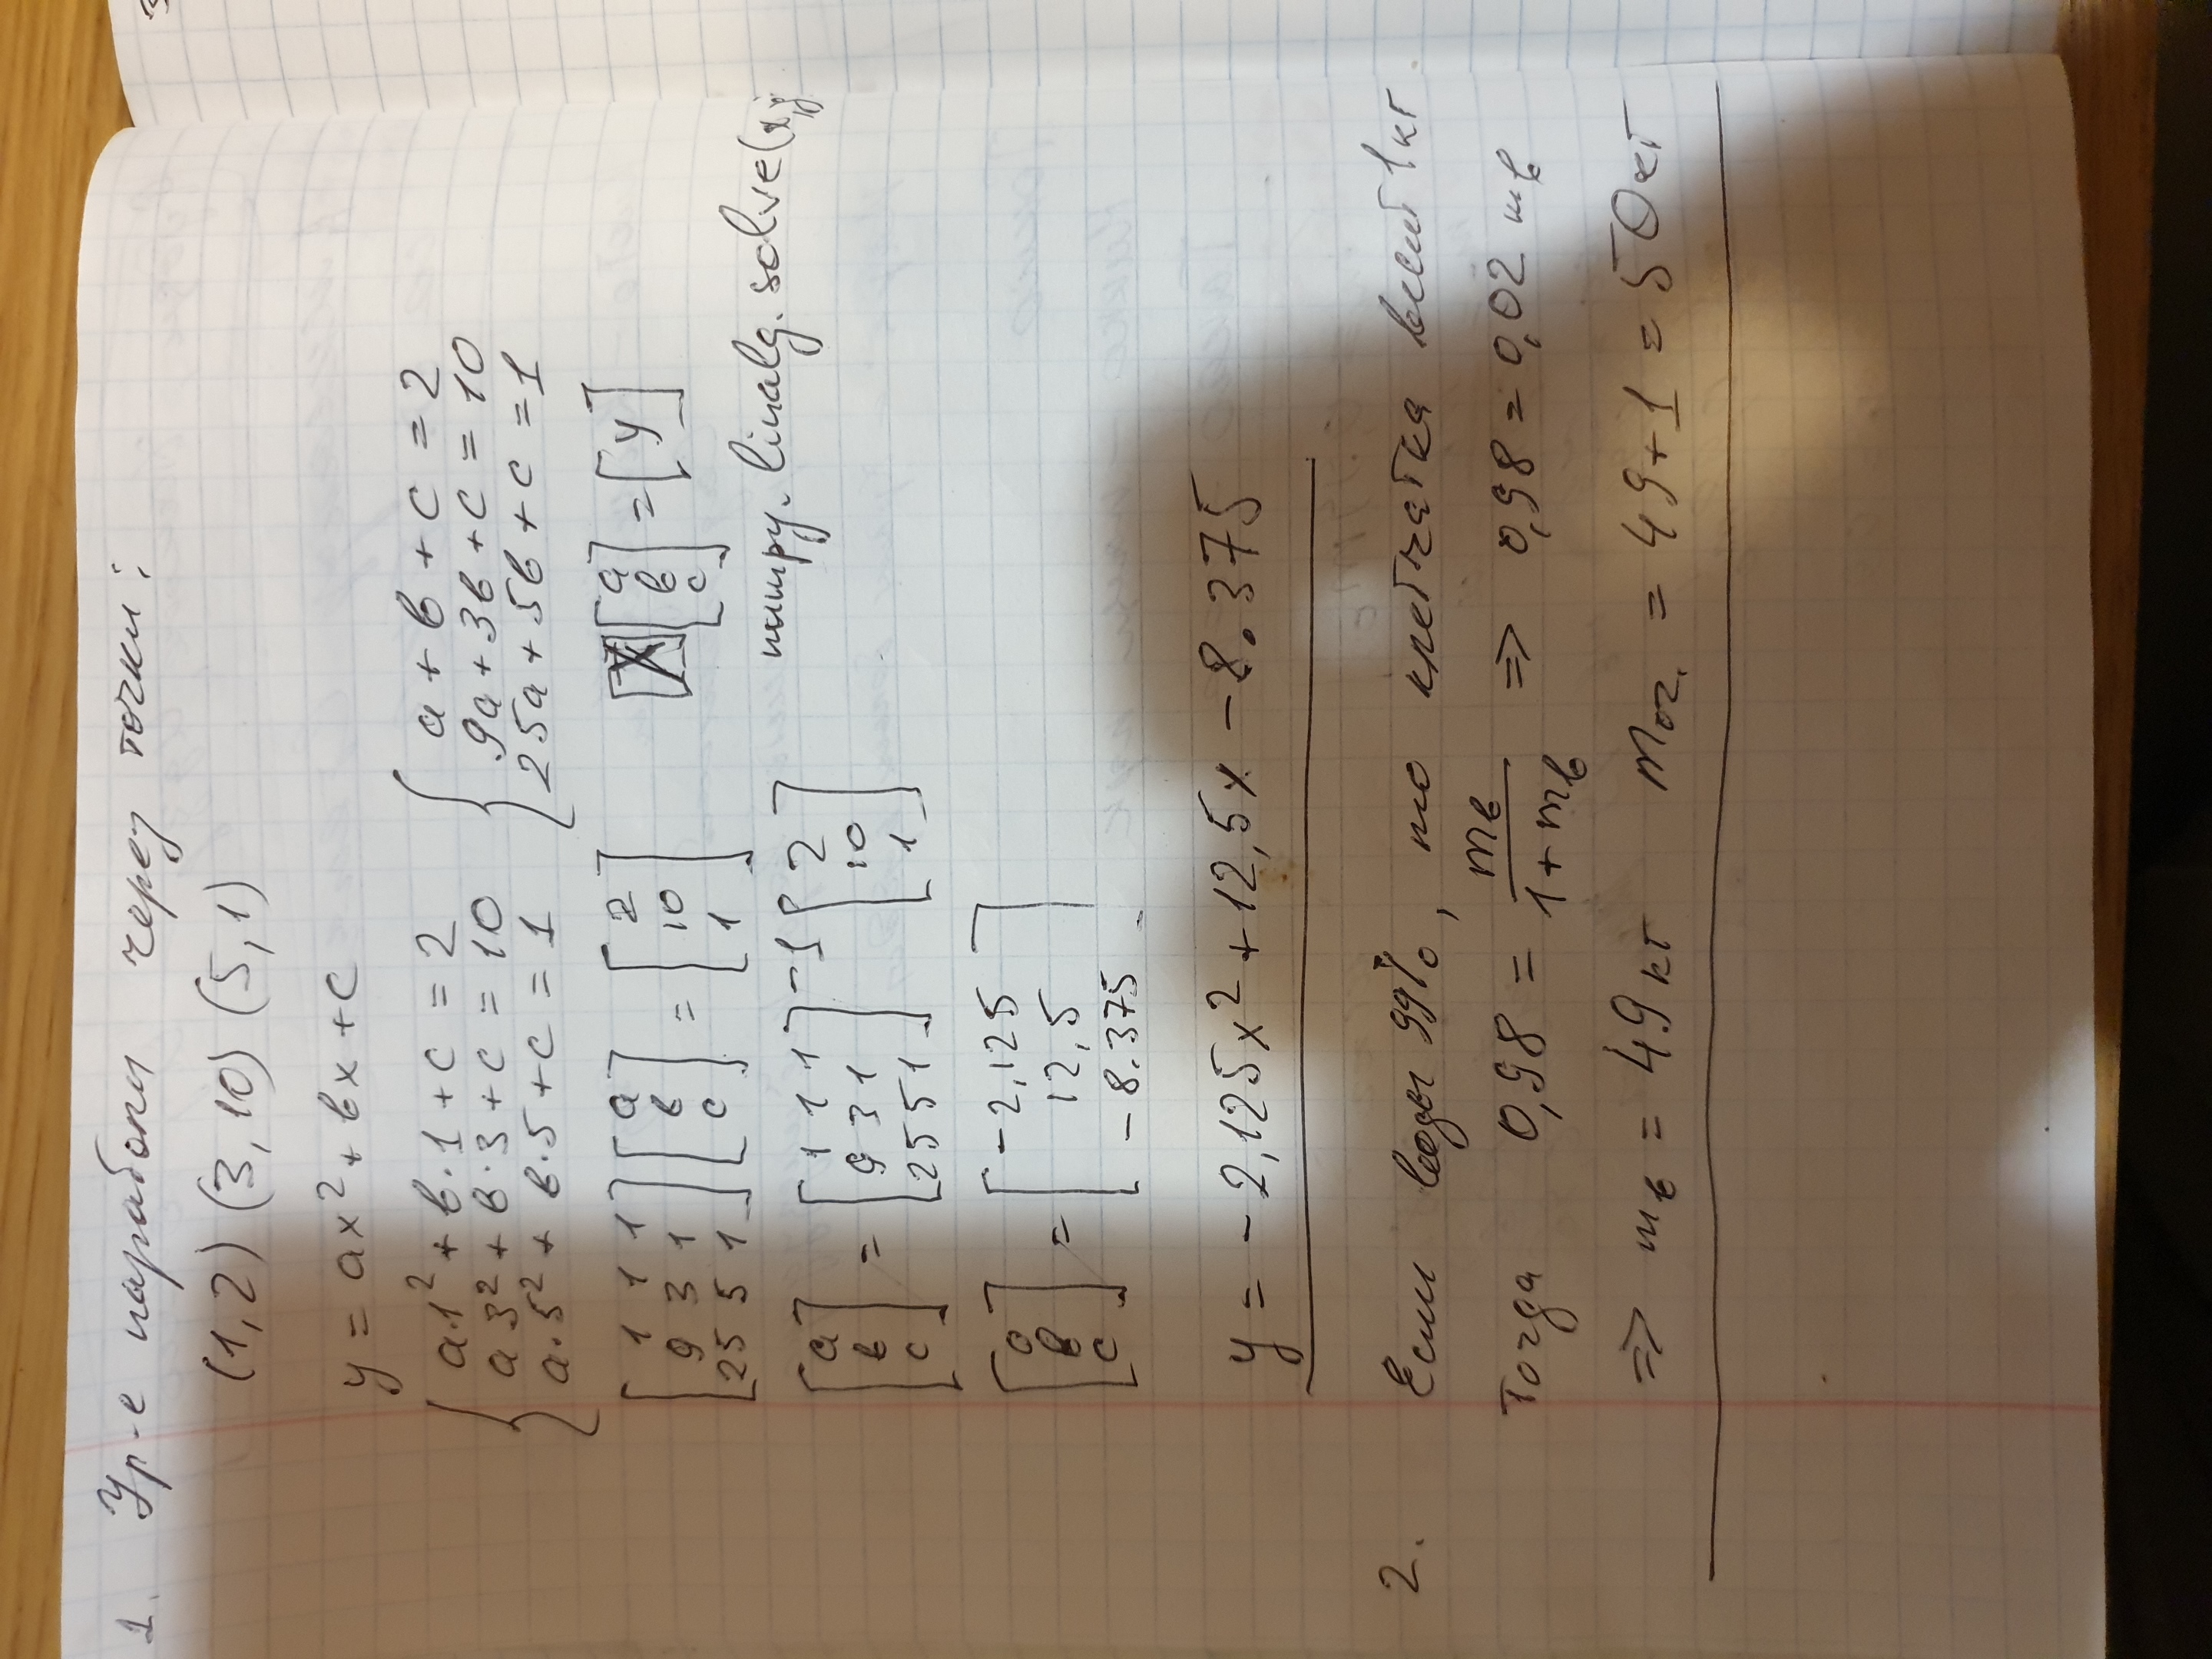 1. Ур-е параболы через точки:
(1,2) (3,10) (5,1)
y = ax² + вx + c
{ a·1² + в·1 + c = 2
a 3² + в·3 + c = 10
a·5² + в·5 + c = 1
{ a + в + c = 2
9a + 3в + c = 10
25a + 5в + c = 1
[ 1 1 1 ] [ a ] = [ 2 ]
[ 9 3 1 ] [ в ] = [ 10 ]
[ 25 5 1 ] [ c ] = [ 1 ]
[X] [ a в c ] = [y]
numpy.linalg.solve(x,y
[ a ] = [ 1 1 1 ]⁻¹ [ 2 ]
[ в ] = [ 9 3 1 ] [ 10 ]
[ c ] = [ 25 5 1 ] [ 1 ]
[ a ] = [ -2,125 ]
[ в ] = [ 12,5 ]
[ c ] = [ -8.375 ]
y = -2,125x² + 12,5x - 8.375
2. Если воды 99%, то клетчатка весит 1кг
Тогда 0,98 = mв / (1 + mв) => 0,98 = 0,02 mв
=> mв = 49 кг mог. = 49+1 = 50кг